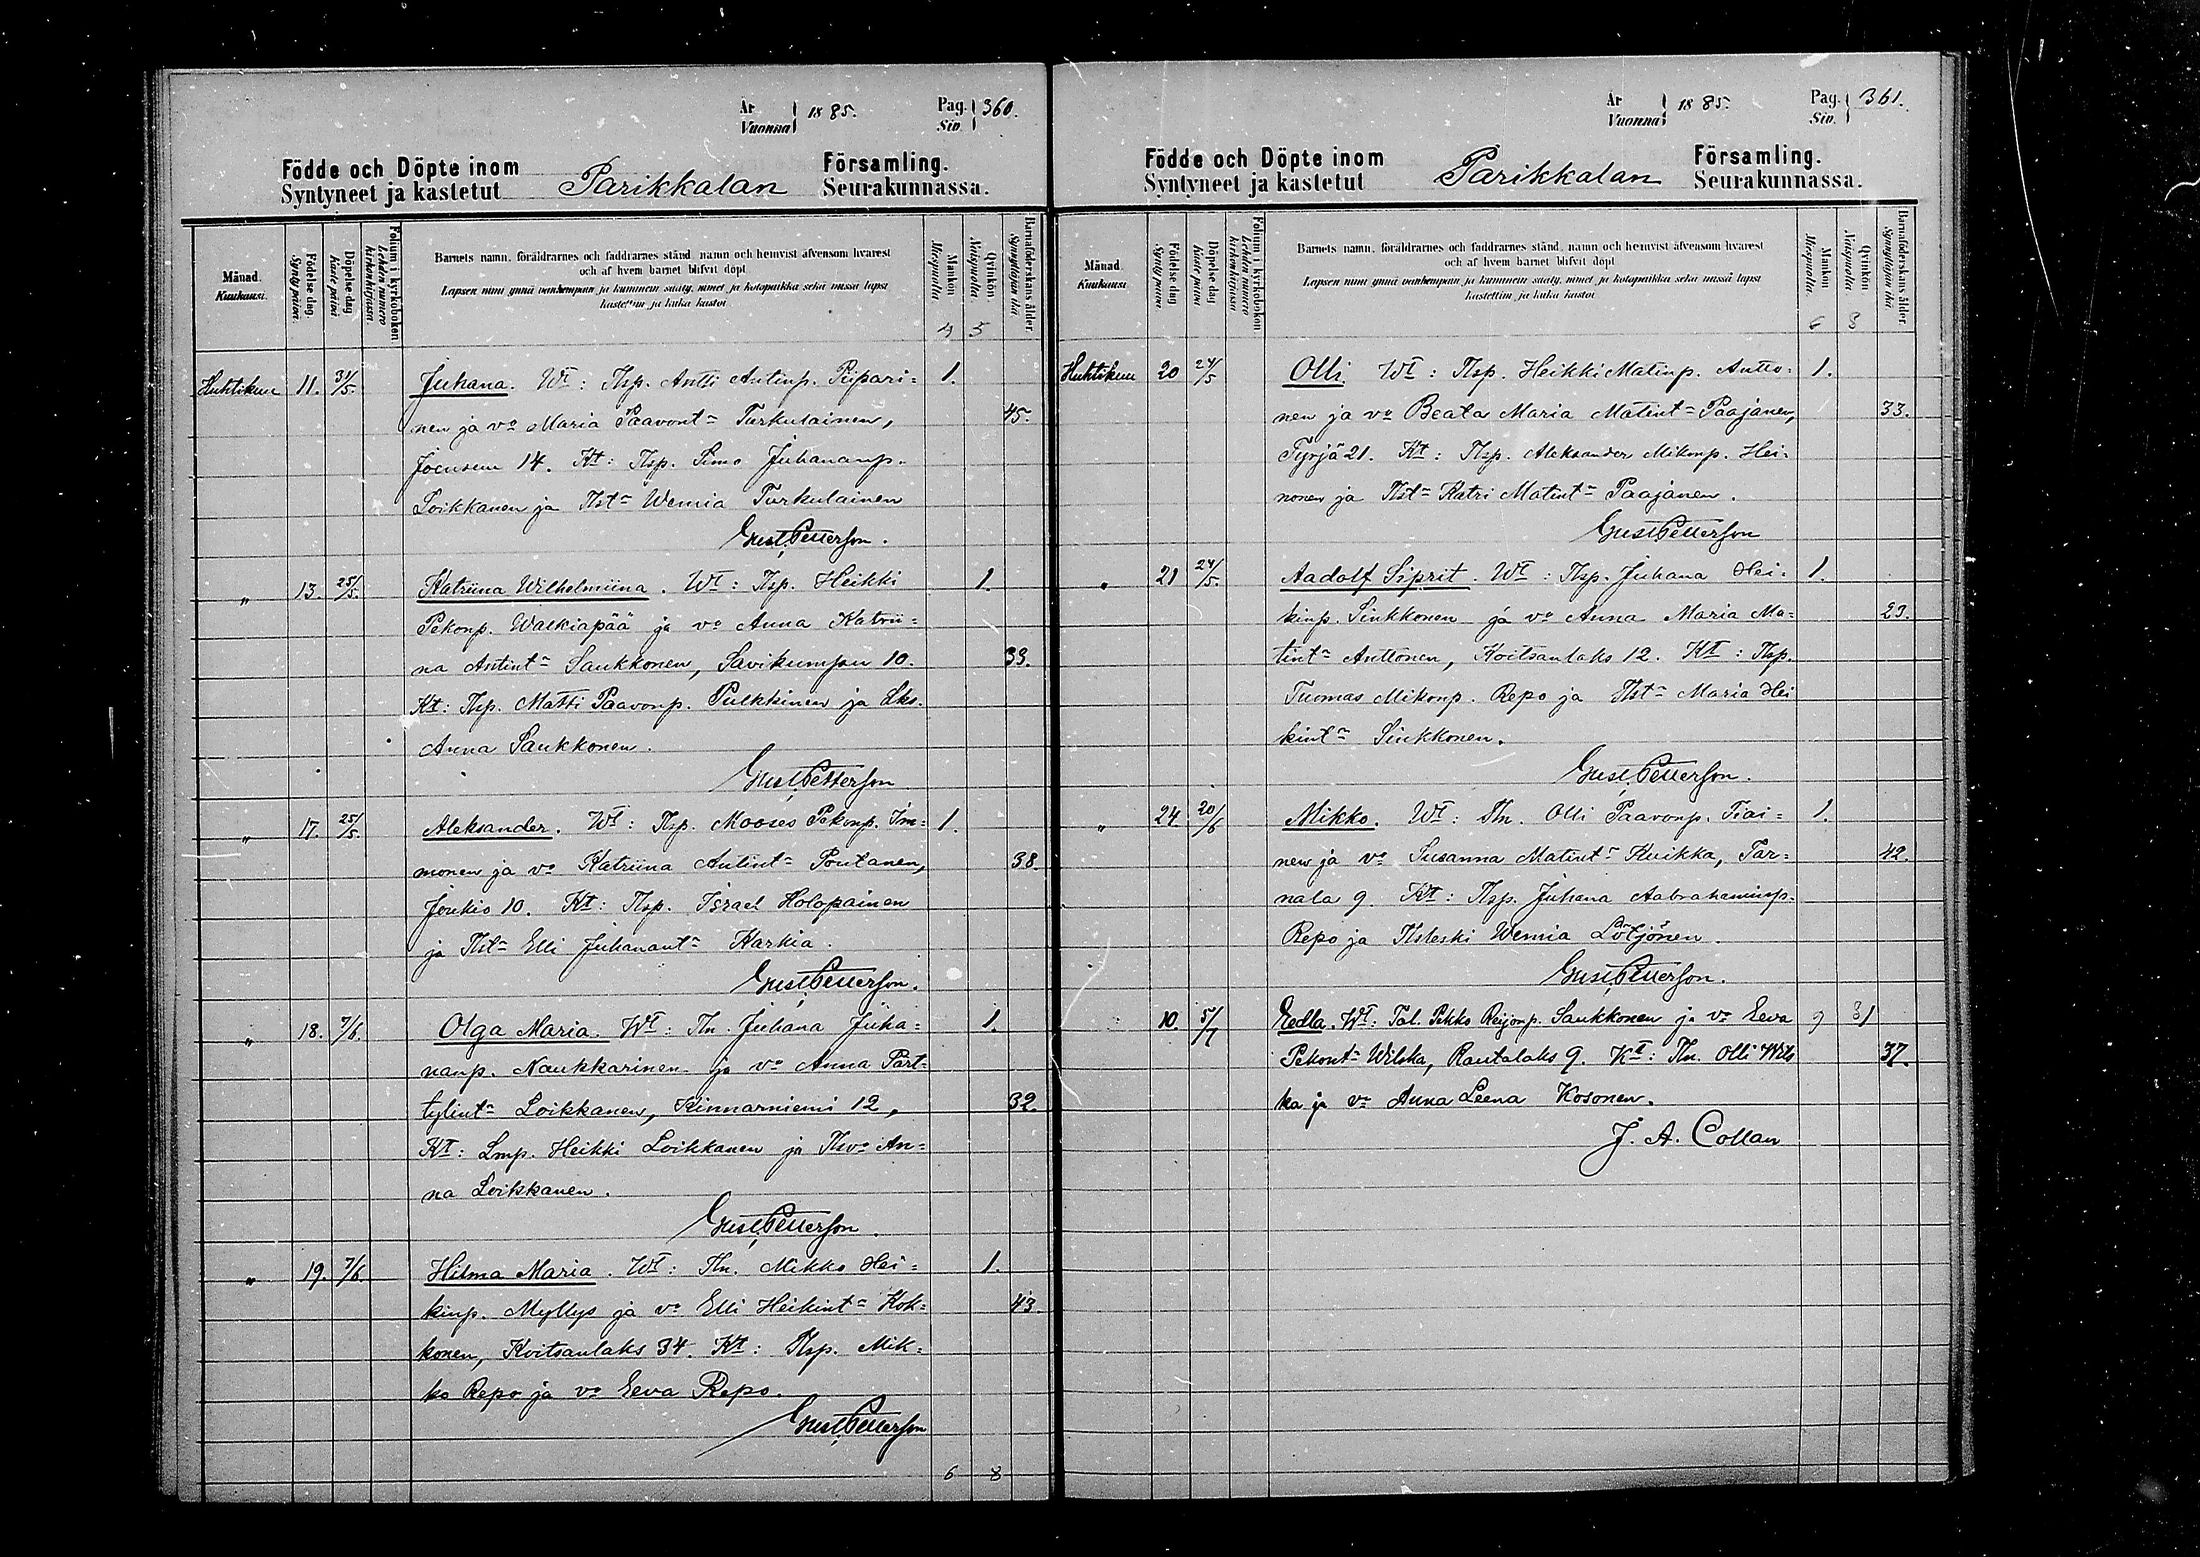 År
Vuonna
1885.
Pag.
Siv.
360.
Födde och Döpte inom
Syntyneet ja kastetut
Parikkalan
Församling.
Seurakunnassa.
Månad.
Kuukausi.
Födelse dag.
Syntypäivä.
Döpelse dag
Kaste päivä
Folium i kyrkoboken
Lehden numero
kirkonkirjassa.
Barnets namn, föräldrarnes och faddrarnes stånd, namn och hemvist äfvensom hvarest
och af hvem barnet blifvit döpt
Lapsen nimi ynnä vanhempain ja kummein sääty, nimet ja kotopaikka sekä missä lapsi
kastettiin ja kuka kastoi
Mankön
Miespuolta
Qvinkön
Naispuolta
Barnaföderskans ålder.
Synnyttäjän ikä
4 5
Huhtikuu 11. 31/5. Juhana. Wt: Tlsp. Antti Antinp. Piipari= 1.
nen ja vo Maria Paavont= Turkulainen, 45.
Joensuu 14. Kt: Tlsp. Simo Juhananp.
Loikkanen ja Tlst= Wemia Turkulainen
Gust. Petterson.
„ 13. 25/5. Katriina Wilhelmiina. Wt: Tlsp. Heikki 1.
Pekonp. Walkiapää ja vo Anna Katrii=
na Antint= Saukkonen, Savikumpu 10. 33.
Kt: Tlsp. Matti Paavonp. Pulkkinen ja Lks.
Anna Saukkonen.
Gust. Petterson
„ 17. 25/5. Aleksander. Wt: Tlsp. Mooses Pekonp. Im= 1.
monen ja vo Katriina Antint= Poutanen, 38.
Joukio 10. Kt: Tlsp. Israel Holopainen
ja Tlst= Elli Juhanant= Karkia.
Gust. Petterson.
„ 18. 7/6. Olga Maria. Wt: Tln. Juhana Juha= 1.
nanp. Naukkarinen ja vo Anna Pärt=
tylint= Loikkanen, Kinnarniemi 12, 32.
Kt: Lmp. Heikki Loikkanen ja Tlvo An=
na Loikkanen.
Gust. Petterson.
„ 19. 7/6 Hilma Maria. Wt: Tln. Mikko Hei= 1.
kinp. Myllys ja vo Elli Heikint= Kok= 43.
konen, Koitsanlaks 34. Kt: Tlsp. Mik=
ko Repo ja vo Eeva Repo.
Gust. Petterson
6 8
År
Vuonna
1885.
Pag.
Siv.
361.
Födde och Döpte inom
Syntyneet ja kastetut
Parikkalan
Församling.
Seurakunnassa.
Månad.
Kuukausi
Födelse dag
Syntypäivä
Döpelse dag
Kaste päivä
Folium i kyrkoboken
Lehden numero
kirkonkirjassa
Barnets namn, föräldrarnes och faddrarnes stånd, namn och hemvist äfvensom hvarest
och af hvem barnet blifvit döpt
Lapsen nimi ynnä vanhempain ja kummein sääty, nimet ja kotopaikka sekä missä lapsi
kastettiin ja kuka kastoi
Mankön
Miespuolta.
Qvinkön
Naispuolta
Barnaföderskans ålder.
Synnyttäjän ikä
6 8
Huhtikuu 20 24/5 Olli. Wt: Tlsp. Heikki Matinp. Antto= 1.
nen ja vo Beata Maria Matint= Paajanen, 33.
Tyrjä 21. Kt: Tlsp. Aleksander Mikonp. Hei=
nonen ja Tlst= Katri Matint= Paajanen.
Gust. Petterson
„ 21 24/5. Aadolf Siprit. Wt: Tlsp. Juhana Hei= 1.
kinp. Sinkkonen ja vo Anna Maria Ma= 23.
tint= Anttonen, Koitsanlaks 12. Kt: Tlsp.
Tuomas Mikonp. Repo ja Tlst= Maria Hei
kint= Sinkkonen.
Gust. Petterson.
„ 24 20/6 Mikko. Wt: Tln. Olli Paavonp. Tiai= 1.
nen ja vo Susanna Matint= Kuikka, Tar= 42.
nala 9. Kt: Tlsp. Juhana Aabrahaminp.
Repo ja Tlsleski Wemia Lötjönen.
Gust. Petterson.
10. 5/7 Eedla. Wt: Tal. Pekko Reijonp. Saukkonen ja vo Eeva 9 31
Pekont= Wilska, Rautalaks 9. Kt: Tln. Olli Wils 37.
ka ja vo Anna Leena Kosonen.
J. A. Collan